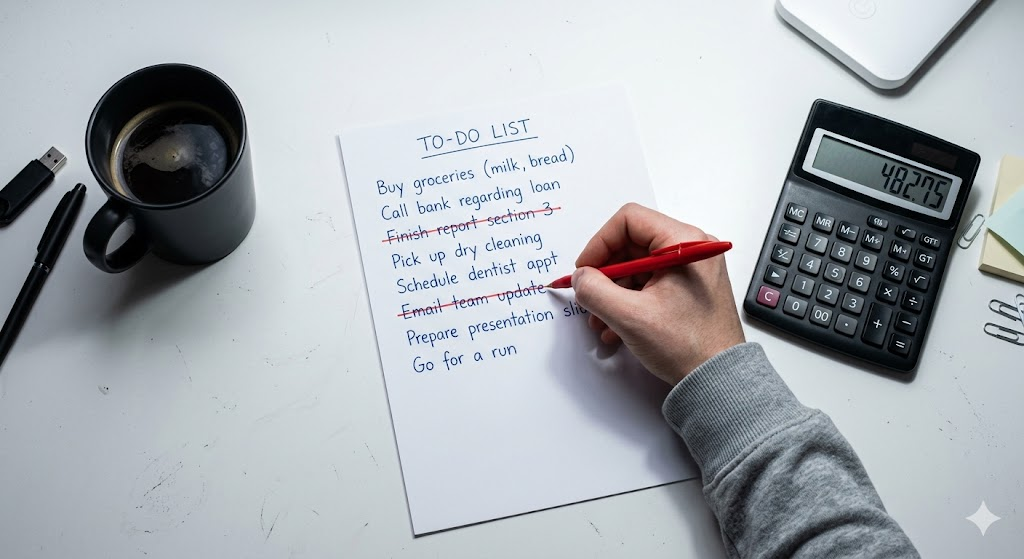 TO-DO LIST
Buy groceries (milk, bread)
Call bank regarding loan
Finish report section 3
Pick up dry cleaning
Schedule dentist appt
Email team update
Prepare presentation
Go for a run
482.75
MC MR M- M+ GT
7 8 9 % √
4 5 6 × ÷
C 1 2 3 + −
0 00 . =